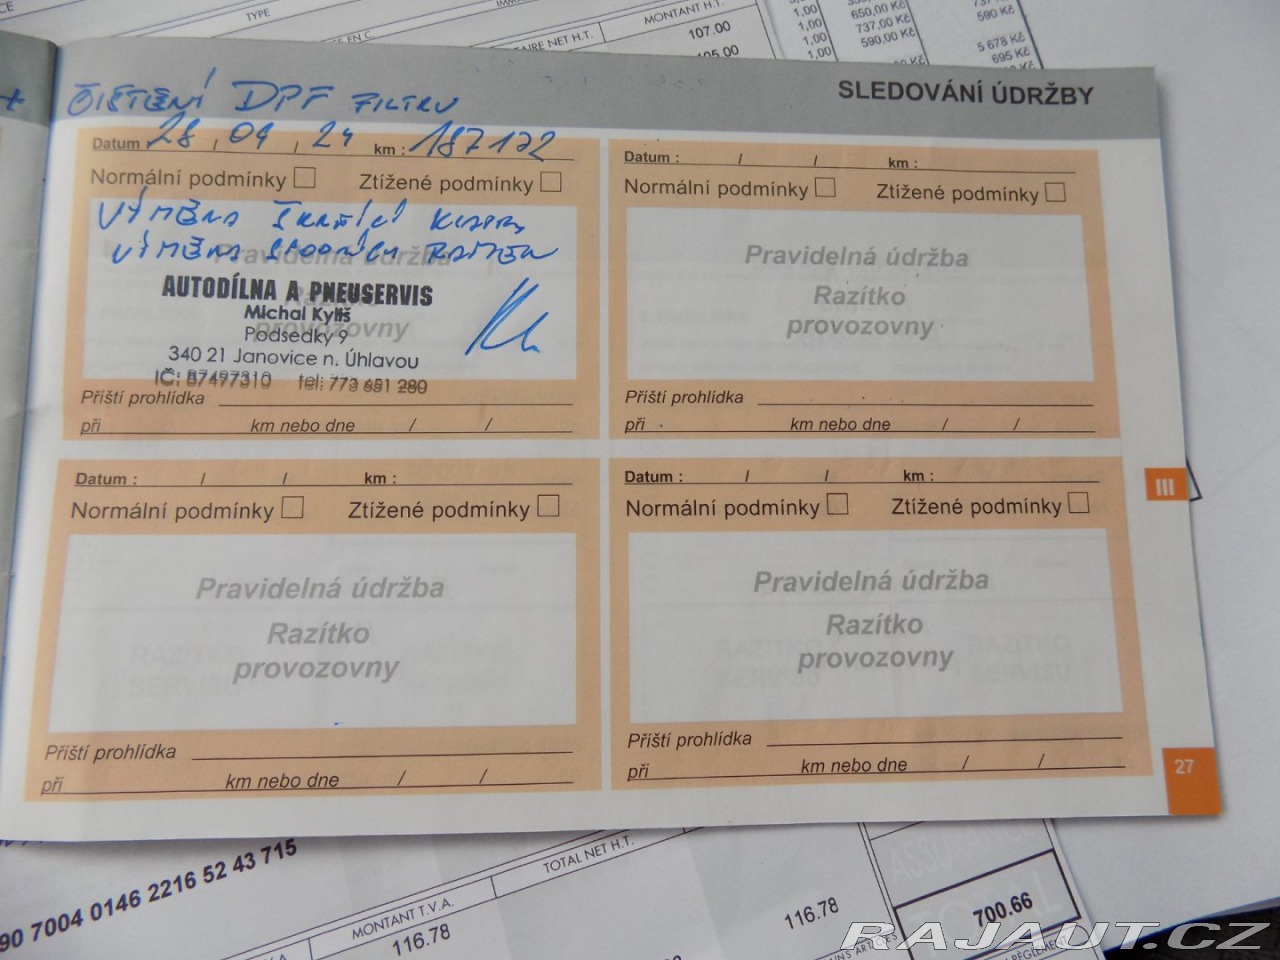 TYPE
EN C
AIRE NET H.T.
MONTANT H.T.
107.00
105.00
1,00
1,00
1,00
650,00 Kč
737,00 Kč
590,00 Kč
590 Kč
5 678 Kč
695 Kč
SLEDOVÁNÍ ÚDRŽBY
ČIŠTĚNÍ DPF FILTRU
Datum : 28 / 09 / 24 km : 187122
Normální podmínky Ztížené podmínky
VÝMĚNA ŠKRTÍCÍ KLAPKY
VÝMĚNA SPODNÍCH RAMEN
Pravidelná údržba
Razítko
provozovny
AUTODÍLNA A PNEUSERVIS
Michal Kyliš
Podsedky 9
340 21 Janovice n. Úhlavou
IČ: 87497310 tel: 773 651 280
Příští prohlídka
při km nebo dne / /
Datum : / / km :
Normální podmínky Ztížené podmínky
Pravidelná údržba
Razítko
provozovny
Příští prohlídka
při km nebo dne / /
Datum : / / km :
Normální podmínky Ztížené podmínky
Pravidelná údržba
Razítko
provozovny
Příští prohlídka
při km nebo dne / /
Datum : / / km :
Normální podmínky Ztížené podmínky
Pravidelná údržba
Razítko
provozovny
Příští prohlídka
při km nebo dne / /
III
27
90 7004 0146 2216 52 43 715
MONTANT T.V.A.
116.78
TOTAL NET H.T.
116.78
700.66
RAJAUT.CZ